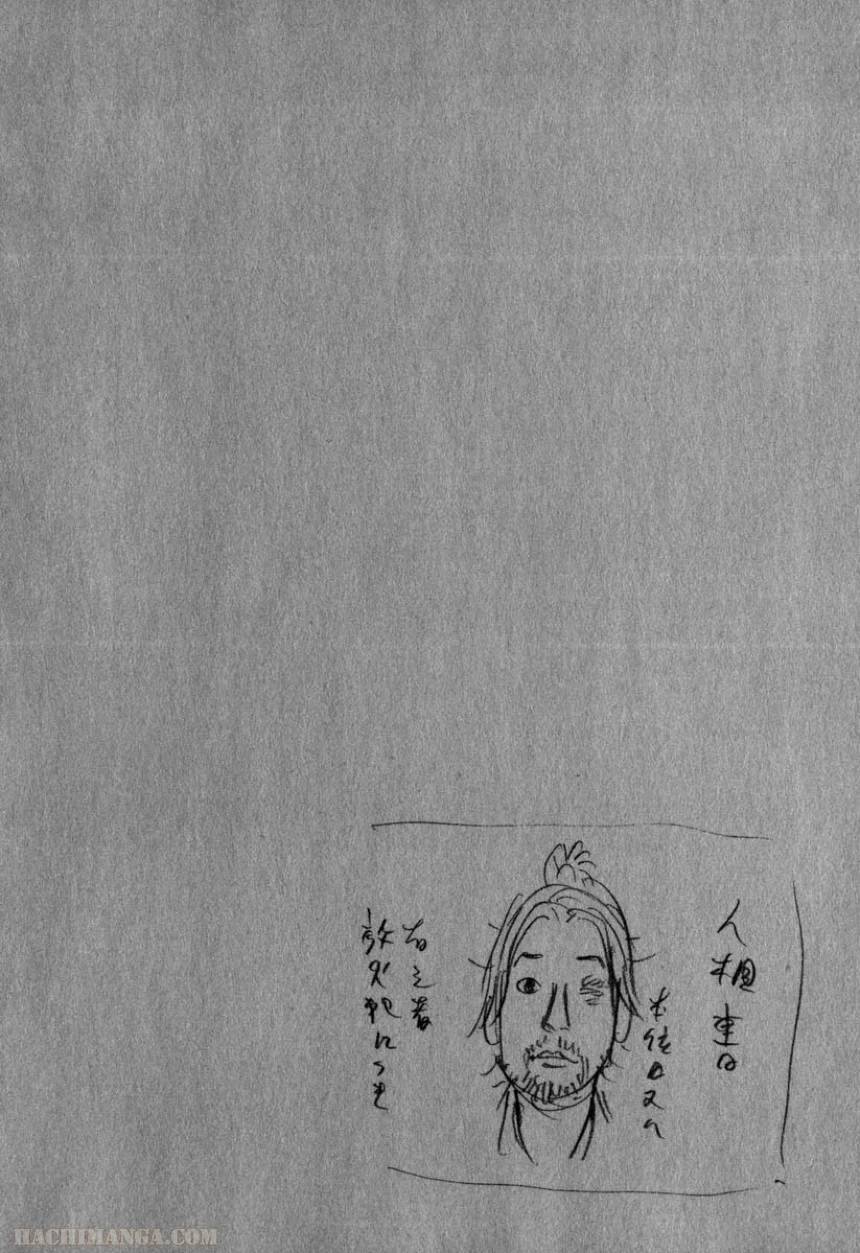 人相書
右之者
放火犯につき
HACHIMANGA.COM